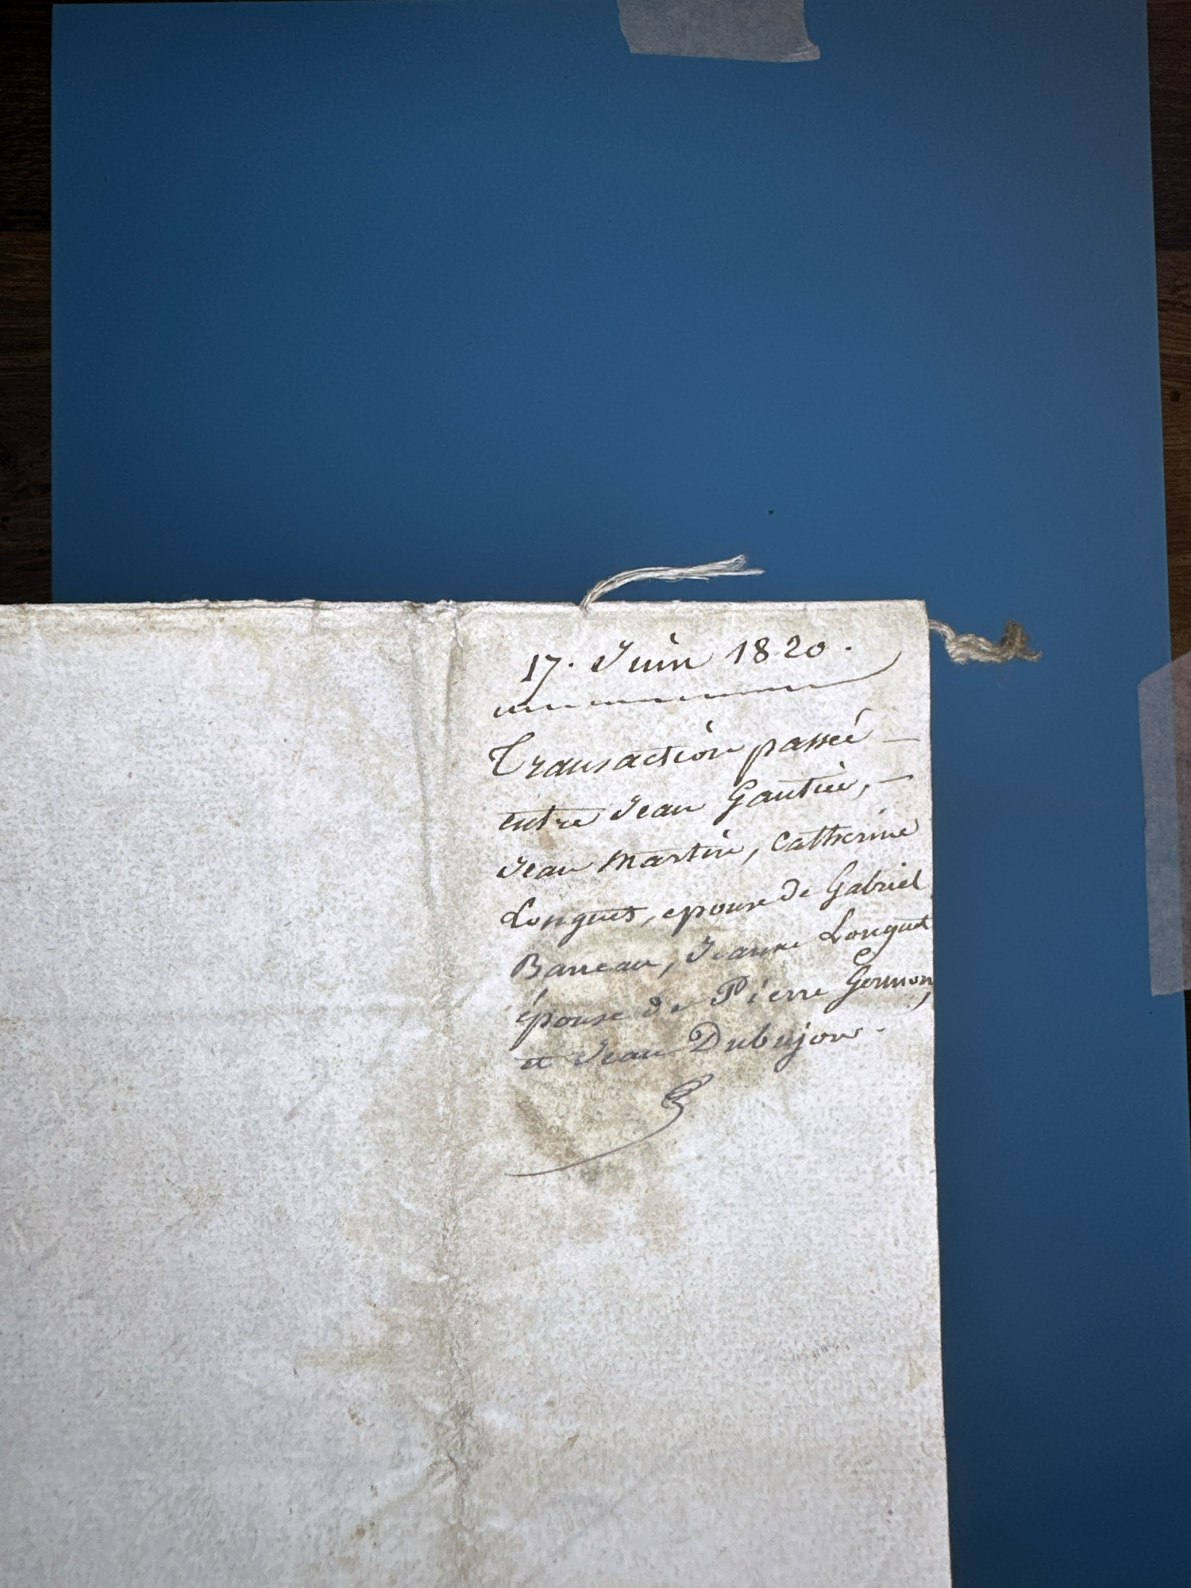 17. Juin 1820.
Transaction passée
entre Jean Gautier,
Jean Martin, Catherine
Longuet, epouse de Gabriel
Jeanne Longuet
épouse de Pierre Germon,
et Jean Dubujon.